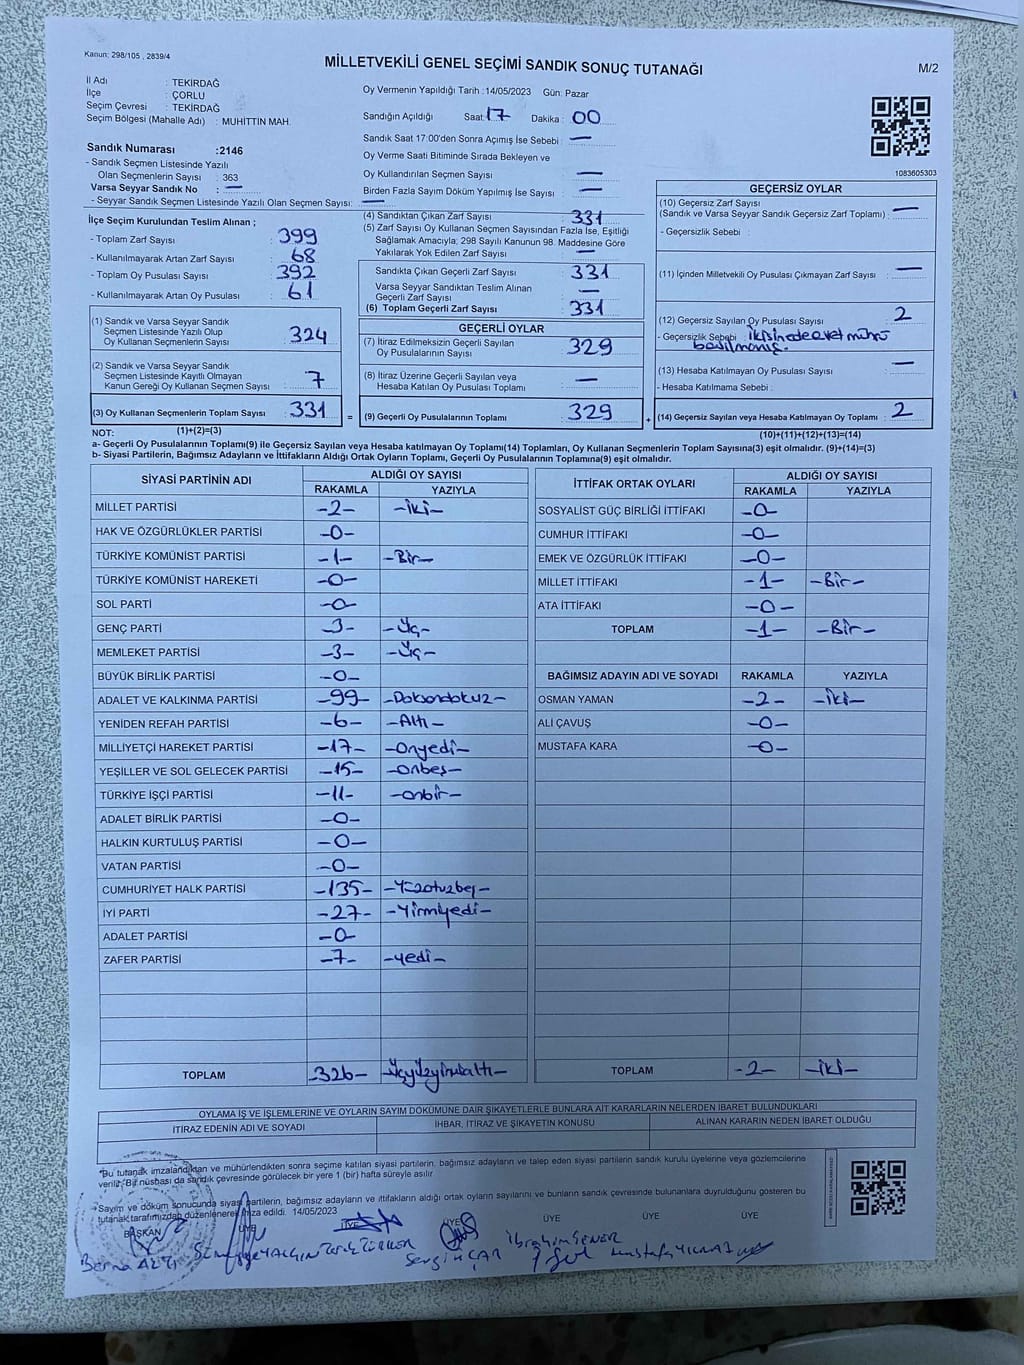 Kanun: 298/105 , 2839/4
MİLLETVEKİLİ GENEL SEÇİMİ SANDIK SONUÇ TUTANAĞI
M/2
İl Adı : TEKİRDAĞ
İlçe : ÇORLU
Seçim Çevresi : TEKİRDAĞ
Seçim Bölgesi (Mahalle Adı) : MUHİTTİN MAH.
Oy Vermenin Yapıldığı Tarih :14/05/2023 Gün: Pazar
Sandığın Açıldığı Saat: 17 Dakika : 00
Sandık Saat 17:00'den Sonra Açımış İse Sebebi : —
Oy Verme Saati Bitiminde Sırada Bekleyen ve
Oy Kullandırılan Seçmen Sayısı : —
Birden Fazla Sayım Döküm Yapılmış İse Sayısı : —
1083605303
Sandık Numarası :2146
- Sandık Seçmen Listesinde Yazılı
Olan Seçmenlerin Sayısı : 363
Varsa Seyyar Sandık No : —
- Seyyar Sandık Seçmen Listesinde Yazılı Olan Seçmen Sayısı: —
İlçe Seçim Kurulundan Teslim Alınan ;
- Toplam Zarf Sayısı : 399
- Kullanılmayarak Artan Zarf Sayısı : 68
- Toplam Oy Pusulası Sayısı : 392
- Kullanılmayarak Artan Oy Pusulası : 61
(1) Sandık ve Varsa Seyyar Sandık
Seçmen Listesinde Yazılı Olup
Oy Kullanan Seçmenlerin Sayısı : 324
(2) Sandık ve Varsa Seyyar Sandık
Seçmen Listesinde Kayıtlı Olmayan
Kanun Gereği Oy Kullanan Seçmen Sayısı : 7
(3) Oy Kullanan Seçmenlerin Toplam Sayısı : 331
(1)+(2)=(3)
(4) Sandıktan Çıkan Zarf Sayısı : 331
(5) Zarf Sayısı Oy Kullanan Seçmen Sayısından Fazla İse, Eşitliği
Sağlamak Amacıyla; 298 Sayılı Kanunun 98. Maddesine Göre
Yakılarak Yok Edilen Zarf Sayısı : —
Sandıkta Çıkan Geçerli Zarf Sayısı : 331
Varsa Seyyar Sandıktan Teslim Alınan
Geçerli Zarf Sayısı : —
(6) Toplam Geçerli Zarf Sayısı : 331
GEÇERLİ OYLAR
(7) İtiraz Edilmeksizin Geçerli Sayılan
Oy Pusulalarının Sayısı : 329
(8) İtiraz Üzerine Geçerli Sayılan veya
Hesaba Katılan Oy Pusulası Toplamı : —
= (9) Geçerli Oy Pusulalarının Toplamı : 329
GEÇERSİZ OYLAR
(10) Geçersiz Zarf Sayısı
(Sandık ve Varsa Seyyar Sandık Geçersiz Zarf Toplamı) : —
- Geçersizlik Sebebi :
(11) İçinden Milletvekili Oy Pusulası Çıkmayan Zarf Sayısı : —
(12) Geçersiz Sayılan Oy Pusulası Sayısı : 2
- Geçersizlik Sebebi : ikisinede evet mührü
basılmamış.
(13) Hesaba Katılmayan Oy Pusulası Sayısı : —
- Hesaba Katılmama Sebebi :
+ (14) Geçersiz Sayılan veya Hesaba Katılmayan Oy Toplamı : 2
(10)+(11)+(12)+(13)=(14)
NOT:
a- Geçerli Oy Pusulalarının Toplamı(9) ile Geçersiz Sayılan veya Hesaba katılmayan Oy Toplamı(14) Toplamları, Oy Kullanan Seçmenlerin Toplam Sayısına(3) eşit olmalıdır. (9)+(14)=(3)
b- Siyasi Partilerin, Bağımsız Adayların ve İttifakların Aldığı Ortak Oyların Toplamı, Geçerli Oy Pusulalarının Toplamına(9) eşit olmalıdır.
SİYASİ PARTİNİN ADI ALDIĞI OY SAYISI
RAKAMLA YAZIYLA
MİLLET PARTİSİ -2- -iki-
HAK VE ÖZGÜRLÜKLER PARTİSİ -0-
TÜRKİYE KOMÜNİST PARTİSİ -1- -Bir-
TÜRKİYE KOMÜNİST HAREKETİ -0-
SOL PARTİ -0-
GENÇ PARTİ -3- -Üç-
MEMLEKET PARTİSİ -3- -Üç-
BÜYÜK BİRLİK PARTİSİ -0-
ADALET VE KALKINMA PARTİSİ -99- -Doksandokuz-
YENİDEN REFAH PARTİSİ -6- -Altı-
MİLLİYETÇİ HAREKET PARTİSİ -17- -Onyedi-
YEŞİLLER VE SOL GELECEK PARTİSİ -15- -onbeş-
TÜRKİYE İŞÇİ PARTİSİ -11- -onbir-
ADALET BİRLİK PARTİSİ -0-
HALKIN KURTULUŞ PARTİSİ -0-
VATAN PARTİSİ -0-
CUMHURİYET HALK PARTİSİ -135- -Yüzotuzbeş-
İYİ PARTİ -27- -Yirmiyedi-
ADALET PARTİSİ -0-
ZAFER PARTİSİ -7- -yedi-
TOPLAM -326- -Üçyüzyirmialtı-
İTTİFAK ORTAK OYLARI ALDIĞI OY SAYISI
RAKAMLA YAZIYLA
SOSYALİST GÜÇ BİRLİĞİ İTTİFAKI -0-
CUMHUR İTTİFAKI -0-
EMEK VE ÖZGÜRLÜK İTTİFAKI -0-
MİLLET İTTİFAKI -1- -Bir-
ATA İTTİFAKI -0-
TOPLAM -1- -Bir-
BAĞIMSIZ ADAYIN ADI VE SOYADI RAKAMLA YAZIYLA
OSMAN YAMAN -2- -iki-
ALİ ÇAVUŞ -0-
MUSTAFA KARA -0-
TOPLAM -2- -iki-
OYLAMA İŞ VE İŞLEMLERİNE VE OYLARIN SAYIM DÖKÜMÜNE DAİR ŞİKAYETLERLE BUNLARA AİT KARARLARIN NELERDEN İBARET BULUNDUKLARI
İTİRAZ EDENİN ADI VE SOYADI İHBAR, İTİRAZ VE ŞİKAYETİN KONUSU ALINAN KARARIN NEDEN İBARET OLDUĞU
*Bu tutanak imzalandıktan ve mühürlendikten sonra seçime katılan siyasi partilerin, bağımsız adayların ve talep eden siyasi partilerin sandık kurulu üyelerine veya gözlemcilerine
verilir. Bir nüshası da sandık çevresinde görülecek bir yere 1 (bir) hafta süreyle asılır
*Sayım ve döküm sonucunda siyasi partilerin, bağımsız adayların ve ittifakların aldığı ortak oyların sayılarını ve bunların sandık çevresinde bulunanlara duyrulduğunu gösteren bu
tutanak tarafımızdan düzenlenerek imza edildi. 14/05/2023
BAŞKAN ÜYE ÜYE ÜYE ÜYE ÜYE ÜYE
Berna ALTI
YALÇIN
Sergin UÇAR
İbrahim ŞENER
Mustafa YILMAZ